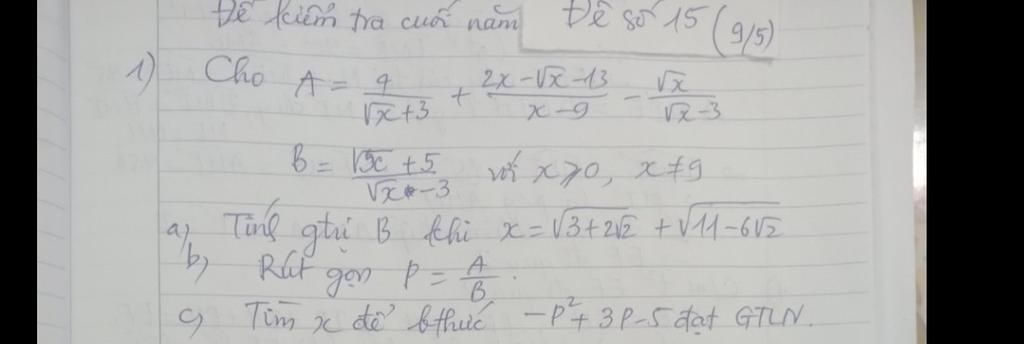 Đề kiểm tra cuối năm Đề số 15 (9/5)
1) Cho A = 4/(√x+3) + (2x-√x-13)/(x-9) - √x/(√x-3)
B = (√x+5)/(√x-3) với x≥0, x≠9
a, Tính gtrị B khi x = √(3+2√2) + √(11-6√2)
b, Rút gọn P = A/B.
c, Tìm x để bthức -P²+3P-5 đạt GTLN.